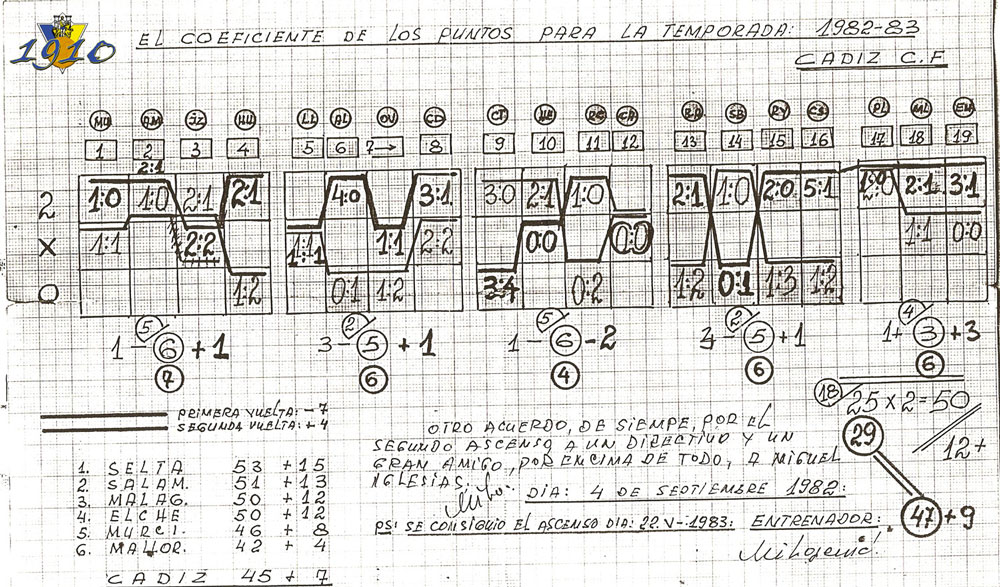 1910
EL COEFICIENTE DE LOS PUNTOS PARA LA TEMPORADA: 1982-83
CADIZ C.F
MU AM JZ HU LI AL OV CD CT HE RC CA BA SB RY CS PL ML EN
1 2 3 4 5 6 7 → 8 9 10 11 12 13 14 15 16 17 18 19
2:1
2 1:0 1:0 2:1 2:1 4:0 3:1 3:0 2:1 1:0 2:1 1:0 2:0 5:1 2:1 3:1
X 1:1 2:2 1:1 1:1 1:1 2:2 0:0 0:0 1:1 0:0
O 1:2 0:1 1:2 3:4 0:2 1:2 0:1 1:3 1:2
5 2 5 2 4
1 - 6 + 1 3 - 5 + 1 1 - 6 - 2 3 - 5 + 1 1+ 3 + 3
7 6 4 6 6
PRIMERA VUELTA: - 7
SEGUNDA VUELTA: + 4
18 25 x 2 = 50
29 12+
47 + 9
1. SELTA 53 + 15
2 SALAM. 51 + 13
3. MALAG. 50 + 12
4. ELCHE 50 + 12
5. MURCI. 46 + 8
6. MALLOR. 42 + 4
CADIZ 45 + 7
OTRO ACUERDO, DE SIEMPRE, POR EL
SEGUNDO ASCENSO A UN DIRECTIVO Y UN
GRAN AMIGO, POR ENCIMA DE TODO, A MIGUEL
IGLESIAS.
DIA: 4 DE SEPTIEMPRE 1982:
PS: SE CONSIGUIO EL ASCENSO DIA: 22 V-1983: ENTRENADOR: